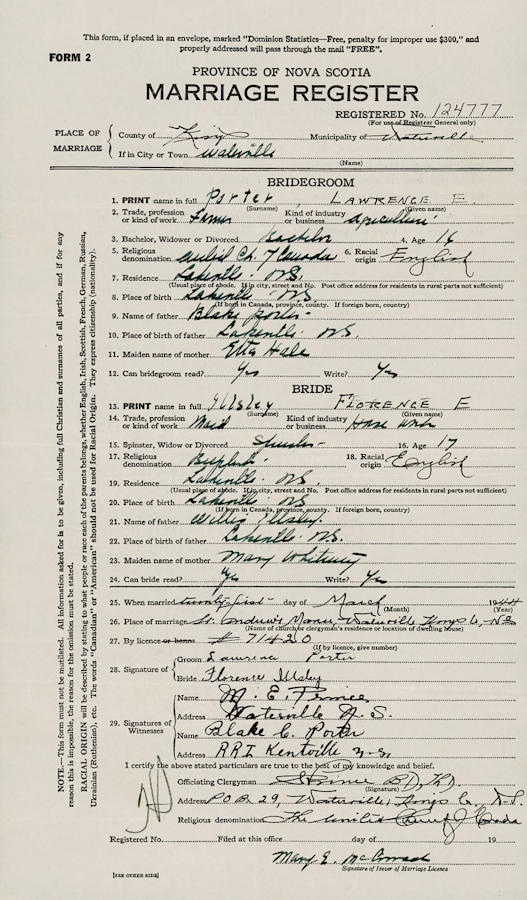 This form, if placed in an envelope, marked "Dominion Statistics—Free, penalty for improper use $300," and
properly addressed will pass through the mail "FREE".
FORM 2
PROVINCE OF NOVA SCOTIA
MARRIAGE REGISTER
REGISTERED No. 124777
(For use of Registrar General only)
PLACE OF MARRIAGE
County of Kings Municipality of Waterville
If in City or Town Waterville
(Name)
BRIDEGROOM
1. PRINT name in full Porter, LAWRENCE E.
(Surname) (Given name)
2. Trade, profession or kind of work Farmer Kind of industry or business Agriculture
3. Bachelor, Widower or Divorced Bachelor 4. Age 16
5. Religious denomination United Ch. of Canada 6. Racial origin English
7. Residence Lakeville N.S.
(Usual place of abode. If in city, street and No. Post office address for residents in rural parts not sufficient)
8. Place of birth Lakeville N.S.
(If born in Canada, province, county. If foreign born, country)
9. Name of father Blake Porter
10. Place of birth of father Lakeville N.S.
11. Maiden name of mother Etta Hale
12. Can bridegroom read? Yes Write? Yes
BRIDE
13. PRINT name in full Illsley FLORENCE E
(Surname) (Given name)
14. Trade, profession or kind of work Maid Kind of industry or business House Work
15. Spinster, Widow or Divorced Spinster 16. Age 17
17. Religious denomination Baptist 18. Racial origin English
19. Residence Lakeville N.S.
(Usual place of abode. If in city, street and No. Post office address for residents in rural parts not sufficient)
20. Place of birth Lakeville N.S.
(If born in Canada, province, county. If foreign born, country)
21. Name of father Willis Illsley.
22. Place of birth of father Lakeville N.S.
23. Maiden name of mother Mary Whitney
24. Can bride read? Yes Write? Yes
25. When married twenty first day of March 1944
(Month) (Year)
26. Place of marriage St. Andrew's Manse, Waterville, Kings Co., N.S.
(Name of church or clergyman's residence or location of dwelling house)
27. By licence or banns # 71420
(If by licence, give number)
28. Signature of
Groom Lawrence Porter
Bride Florence Illsley
29. Signatures of Witnesses
Name M. E. Prince
Address Waterville N.S.
Name Blake C. Porter
Address RR1 Kentville N.S.
I certify the above stated particulars are true to the best of my knowledge and belief.
Officiating Clergyman Prince B.D.
(Signature)
Address P.O.B. 29, Waterville, Kings Co., N.S.
Religious denomination The United Church of Canada
Registered No. Filed at this office day of 19
Mary E.
Signature of Issuer of Marriage Licence
[SEE OTHER SIDE]
NOTE.—This form must not be mutilated. All information asked for is to be given, including full Christian and surnames of all parties, and if for any
reason this is impossible, the reason for the omission must be stated.
RACIAL ORIGIN will be described by stating to what people or race each of the parents belongs, whether English, Irish, Scottish, French, German, Russian,
Ukrainian (Ruthenian), etc. The words "Canadian" or "American" should not be used for Racial Origin. They express citizenship (nationality).